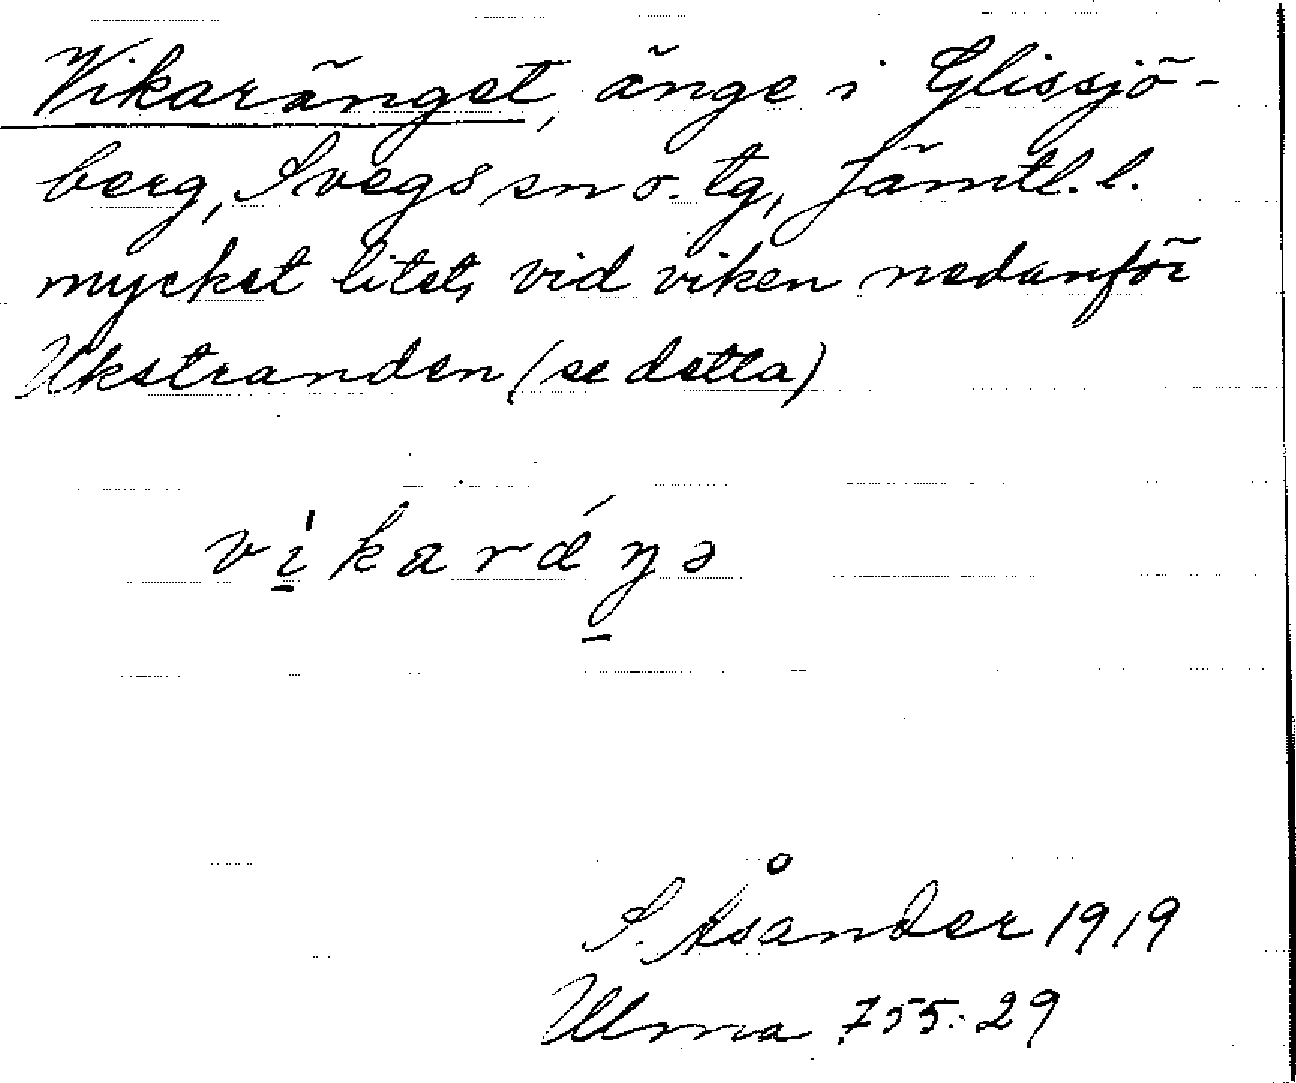 Vikaränget, änge i Glissjö-
berg, Svegs sn o. tg, Jämtl. l.
mycket litet, vid viken nedanför
Ukstranden (se detta)
vi̲̍karáŋə
S. Åsander 1919
Ulma 755:29